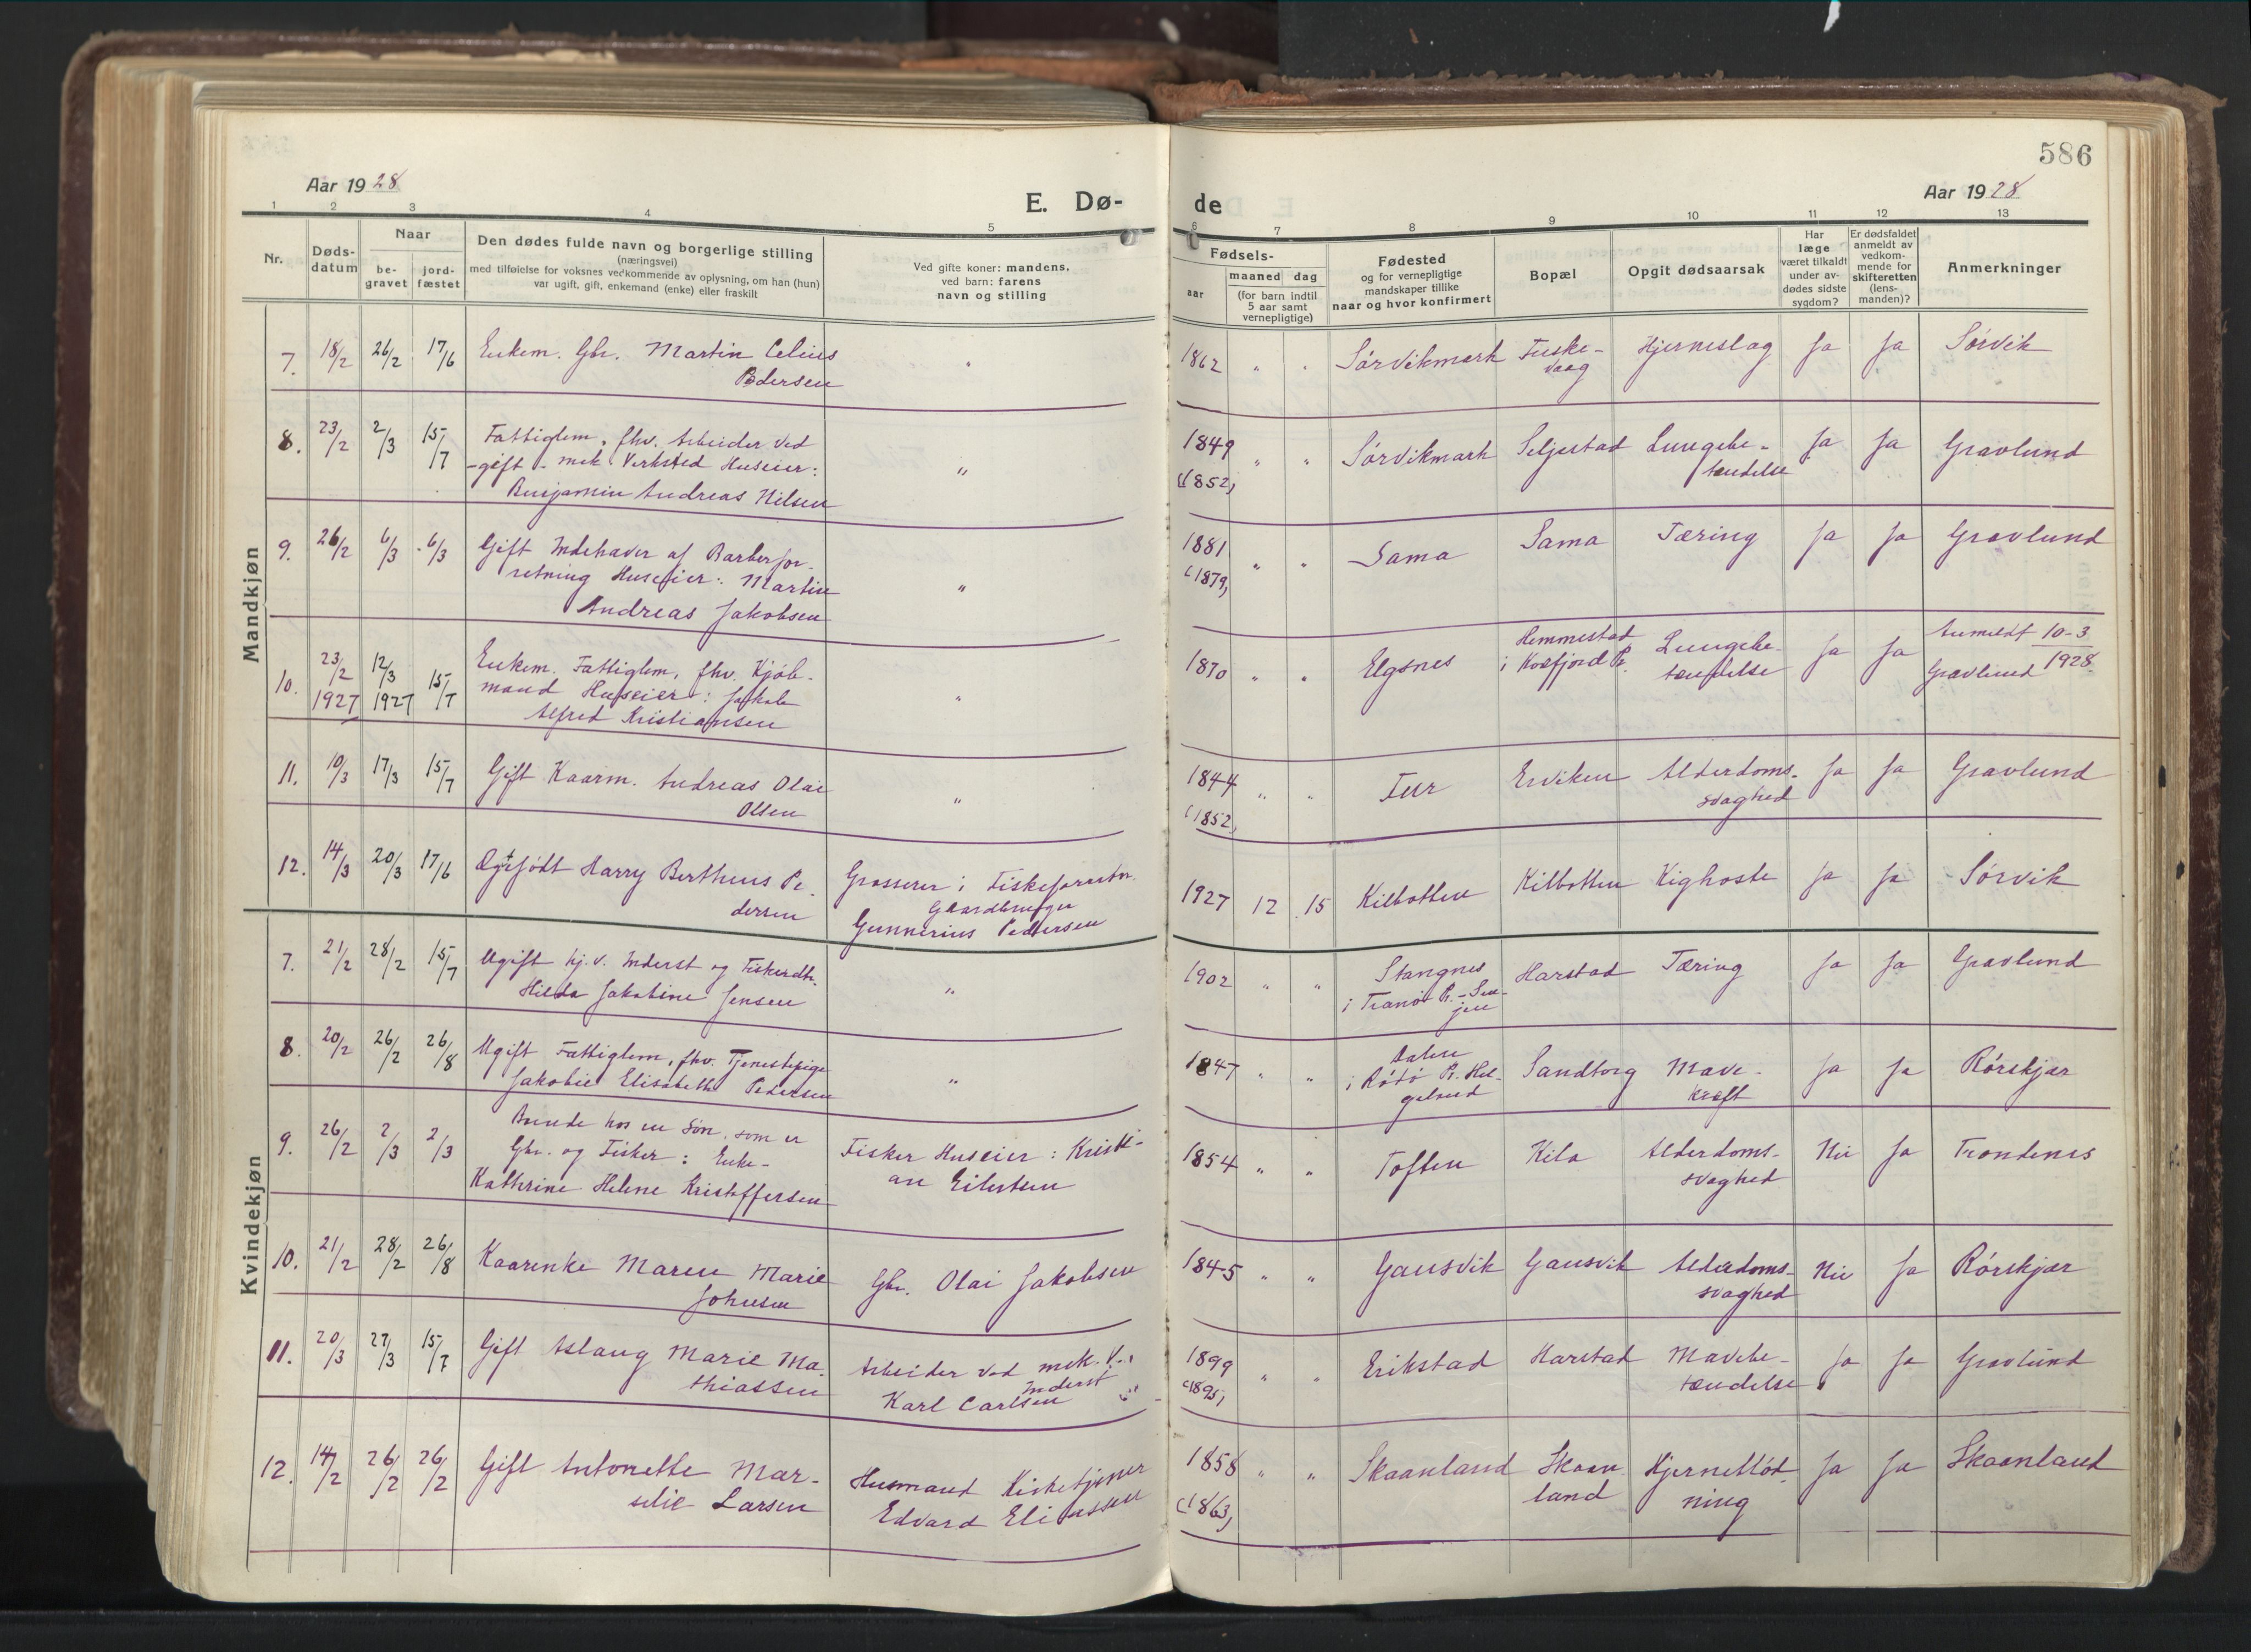 586
Aar 1928
E. Dø-
de
Aar 1928
1 2 3 4 5 6 7 8 9 10 11 12 13
Nr.
Døds-
datum
Naar
be-
gravet
jord-
fæstet
Den dødes fulde navn og borgerlige stilling
(næringsvei)
med tilføielse for voksnes vedkommende av oplysning, om han (hun)
var ugift, gift, enkemand (enke) eller fraskilt
Ved gifte koner: mandens,
ved barn: farens
navn og stilling
Fødsels-
aar
maaned dag
(for barn indtil
5 aar samt
vernepligtige)
Fødested
og for vernepligtige
mandskaper tillike
naar og hvor konfirmert
Bopæl
Opgit dødsaarsak
Har
læge
været tilkaldt
under av-
dødes sidste
sygdom?
Er dødsfaldet
anmeldt av
vedkom-
mende for
skifteretten
(lens-
manden)?
Anmerkninger
Mandkjøn
7. 18/2 26/2 17/6 Enkem. Gbr. Martin Celius
Pedersen
1862 " " Sørvikmark Fuske-
vaag
Hjerneslag Ja Ja Sørvik
8. 23/2 2/3 15/7 Fattiglem, fhv. Arbeider ved
-gift- mek. Verksted Huseier:
Benjamin Andreas Nilsen
"
1849
(1852)
" " Sørvikmark Seljestad Lungebe-
tændelse
Ja Ja Gravlund
9. 26/2 6/3 6/3 Gift Indehaver af Barberfor-
retning Huseier: Martin
Andreas Jakobsen
"
1881
(1879)
" " Sama Sama Tæring Ja Ja Gravlund
10. 23/2
1927
12/3
1927
15/7
Enkem. Fattiglem, fhv. Kjøb-
mand Huseier: Jakob
Alfred Kristiansen
"
1870 " " Elgsnes Hemmestad
i Kvæfjord Pr.
Lungebe-
tændelse
Ja Ja Anmeldt 10-3
1928
Gravlund
11. 10/3 17/3 15/7 Gift Kaarm. Andreas Olai
Olsen
"
1844
(1852)
" " Tur Erviken Alderdoms-
svaghed
Ja Ja Gravlund
12. 14/3 20/3 17/6 Ægtefødt Harry Bertheus Pe-
dersen
Grosserer i Fiskeforretn.
Gaardbruger
Gunnerius Pedersen
1927 12 15 Kilbotten Kilbotten Kighoste Ja Ja Sørvik
Kvindekjøn
7. 21/2 28/2 15/7 Ugift hj.v. Inderst og Fiskerdtr.
Hilda Jakobine Jensen
"
1902 " " Stangnes
i Tranø Pr. - Sen-
jen
Harstad Tæring Ja Ja Gravlund
8. 20/2 26/2 26/8 Ugift Fattiglem, fhv. Tjenestepige
Jakobie Elisabeth Pedersen
"
1847 " "
i Rødø Pr. Hel-
geland
Sandtorg Mave-
kræft
Ja Ja Rørskjær
9. 26/2 2/3 2/3 Boende hos en Søn, som er
Gbr. og Fisker: Enke-
Kathrine Helene Kristoffersen
Fisker Huseier: Kristi-
an Eilertsen
1854 " " Toften Kila Alderdoms-
svaghed
Nei Ja Trondenes
10. 21/2 28/2 26/8 Kaarenke Maren Marie
Johnsen
Gbr. Olai Jakobsen
1845 " " Gausvik Gausvik Alderdoms-
svaghed
Nei Ja Rørskjær
11. 20/3 27/3 15/7 Gift Aslaug Marie Ma-
thiassen
Arbeider ved mek. V.
Inderst
Karl Carlsen
1899
(1895)
" " Erikstad Harstad Mavebe-
tændelse
Ja Ja Gravlund
12. 14/2 26/2 26/2 Gift Antonette Mar-
selie Larsen
Husmand Kirketjener
Edvard Eliassen
1858
(1863)
" " Skaanland Skaan-
land
Hjerneblød-
ning
Ja Ja Skaanland